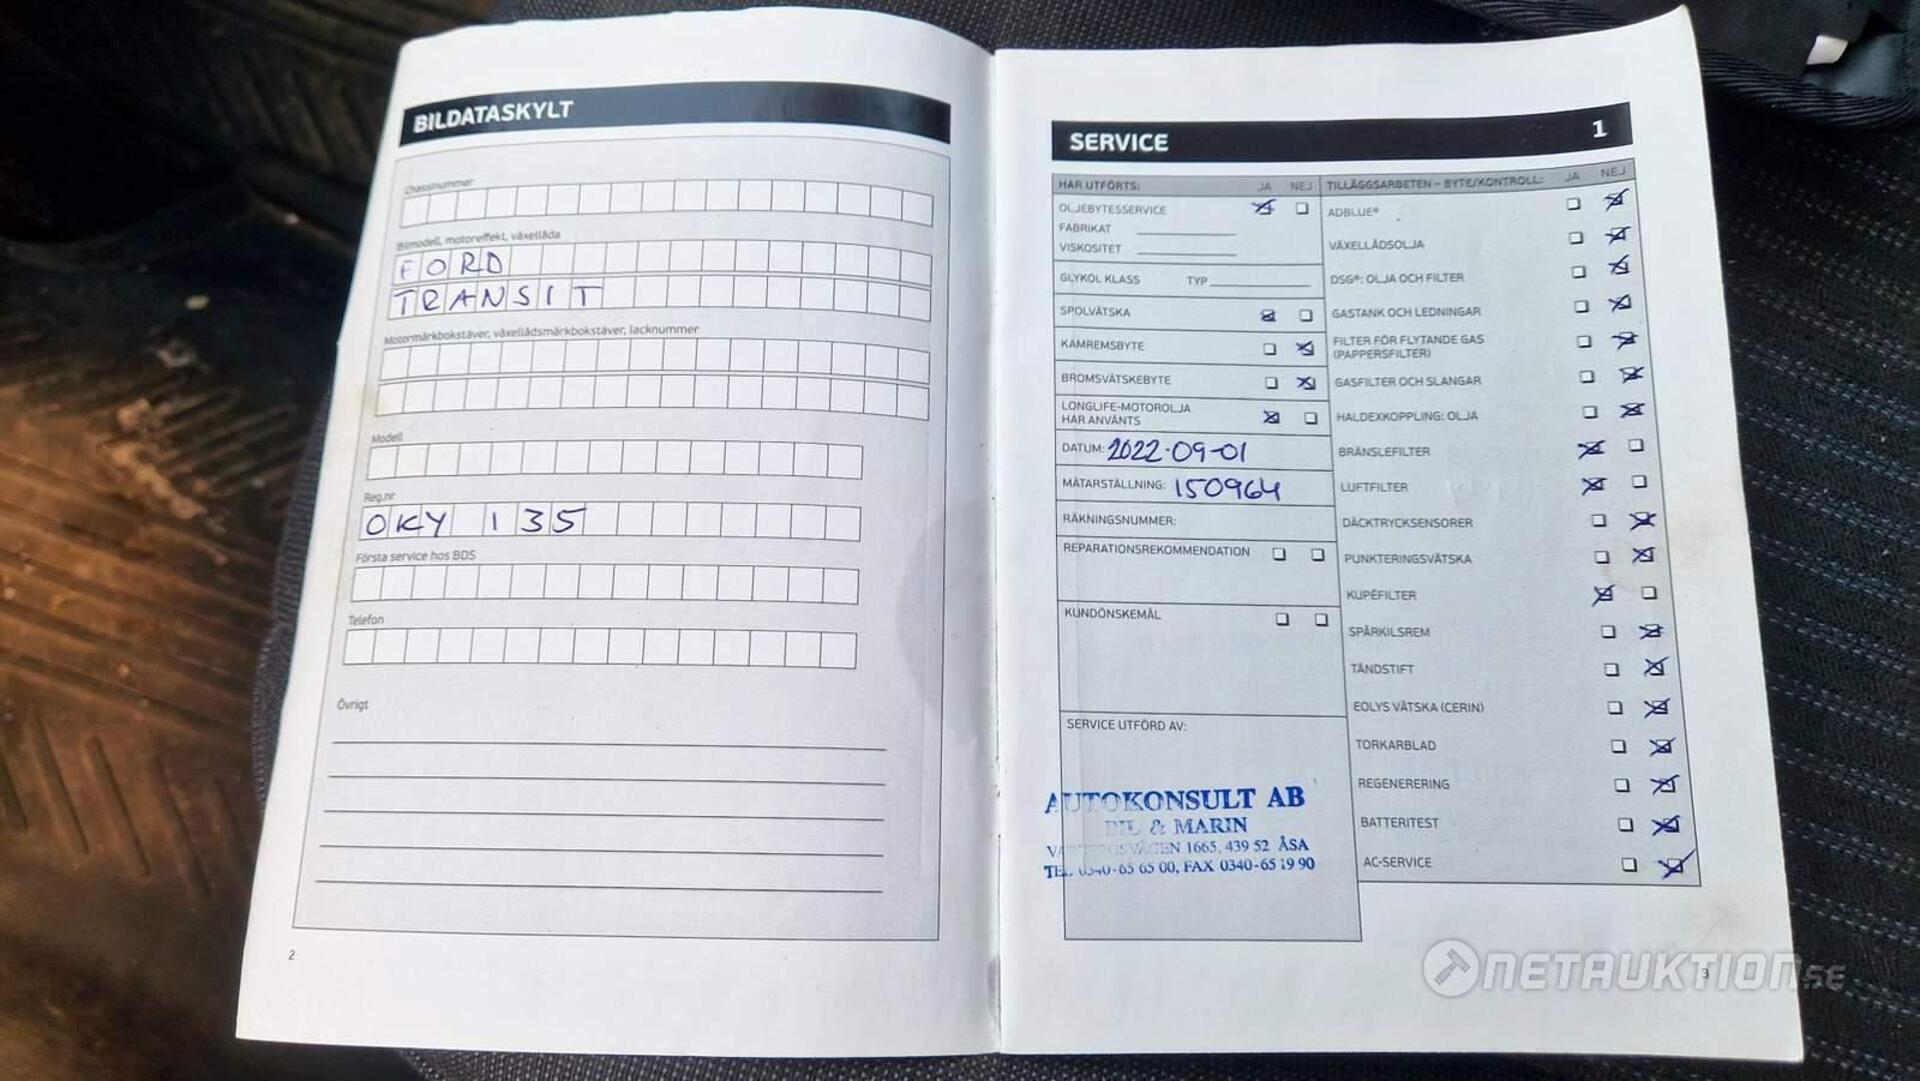 BILDATASKYLT
Chassinummer
Bilmodell, motoreffekt, växellåda
FORD
TRANSIT
Motormärkbokstäver, växellådsmärkbokstäver, lacknummer
Modell
Reg.nr
OKY 135
Första service hos BDS
Telefon
Övrigt
2
SERVICE 1
HAR UTFÖRTS: JA NEJ
OLJEBYTESSERVICE
FABRIKAT
VISKOSITET
GLYKOL KLASS TYP
SPOLVÄTSKA
KAMREMSBYTE
BROMSVÄTSKEBYTE
LONGLIFE-MOTOROLJA
HAR ANVÄNTS
DATUM: 2022-09-01
MÄTARSTÄLLNING: 150964
RÄKNINGSNUMMER:
REPARATIONSREKOMMENDATION
KUNDÖNSKEMÅL
SERVICE UTFÖRD AV:
AUTOKONSULT AB
BIL & MARIN
VARBERGSVÄGEN 1665, 439 52 ÅSA
TEL 0340-65 65 00, FAX 0340-65 19 90
TILLÄGGSARBETEN – BYTE/KONTROLL: JA NEJ
ADBLUE®
VÄXELLÅDSOLJA
DSG®: OLJA OCH FILTER
GASTANK OCH LEDNINGAR
FILTER FÖR FLYTANDE GAS
(PAPPERSFILTER)
GASFILTER OCH SLANGAR
HALDEXKOPPLING: OLJA
BRÄNSLEFILTER
LUFTFILTER
DÄCKTRYCKSENSORER
PUNKTERINGSVÄTSKA
KUPÉFILTER
SPÅRKILSREM
TÄNDSTIFT
EOLYS VÄTSKA (CERIN)
TORKARBLAD
REGENERERING
BATTERITEST
AC-SERVICE
3
NETAUKTION.SE